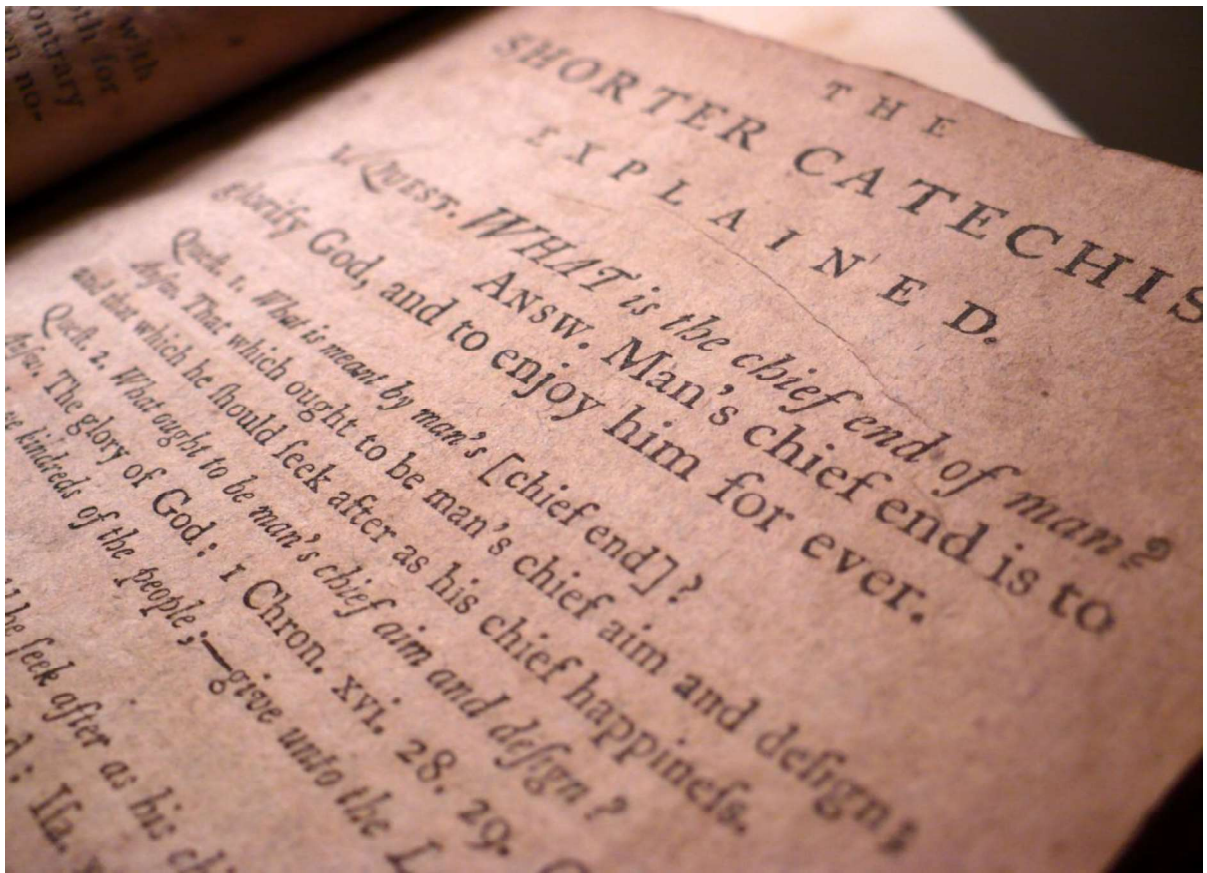 with
for
contrary
no.
THE
SHORTER CATECHIS
EXPLAINED.
1. QUEST. WHAT is the chief end of man?
ANSW. Man's chief end is to
glorify God, and to enjoy him for ever.
Queſt. 1. What is meant by man's [chief end]?
Anſw. That which ought to be man's chief aim and deſign;
and that which he ſhould ſeek after as his chief happineſs.
Queſt. 2. What ought to be man's chief aim and deſign?
Anſw. The glory of God: 1 Chron. xvi. 28. 29.
kindreds of the people;—give unto the L
he ſeek after as his chi
: Iſa. x